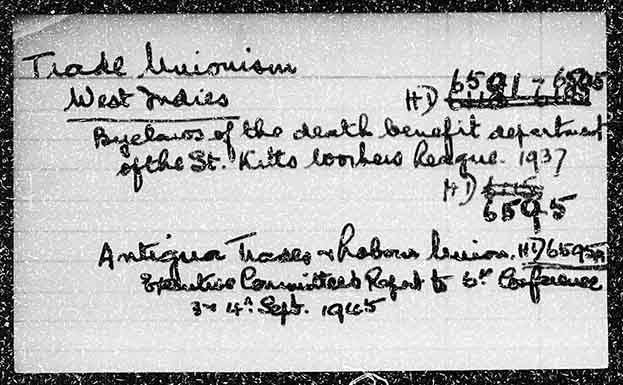 Trade Unionism
West Indies
6591 - 6595
HD
Byelaws of the death benefit department
of the St. Kitts Workers League. 1937
HD
6595
Antigua Trades & Labour Union. HD 6595A
Executive Committee's Report to 6th Conference
3 - 4th Sept. 1945